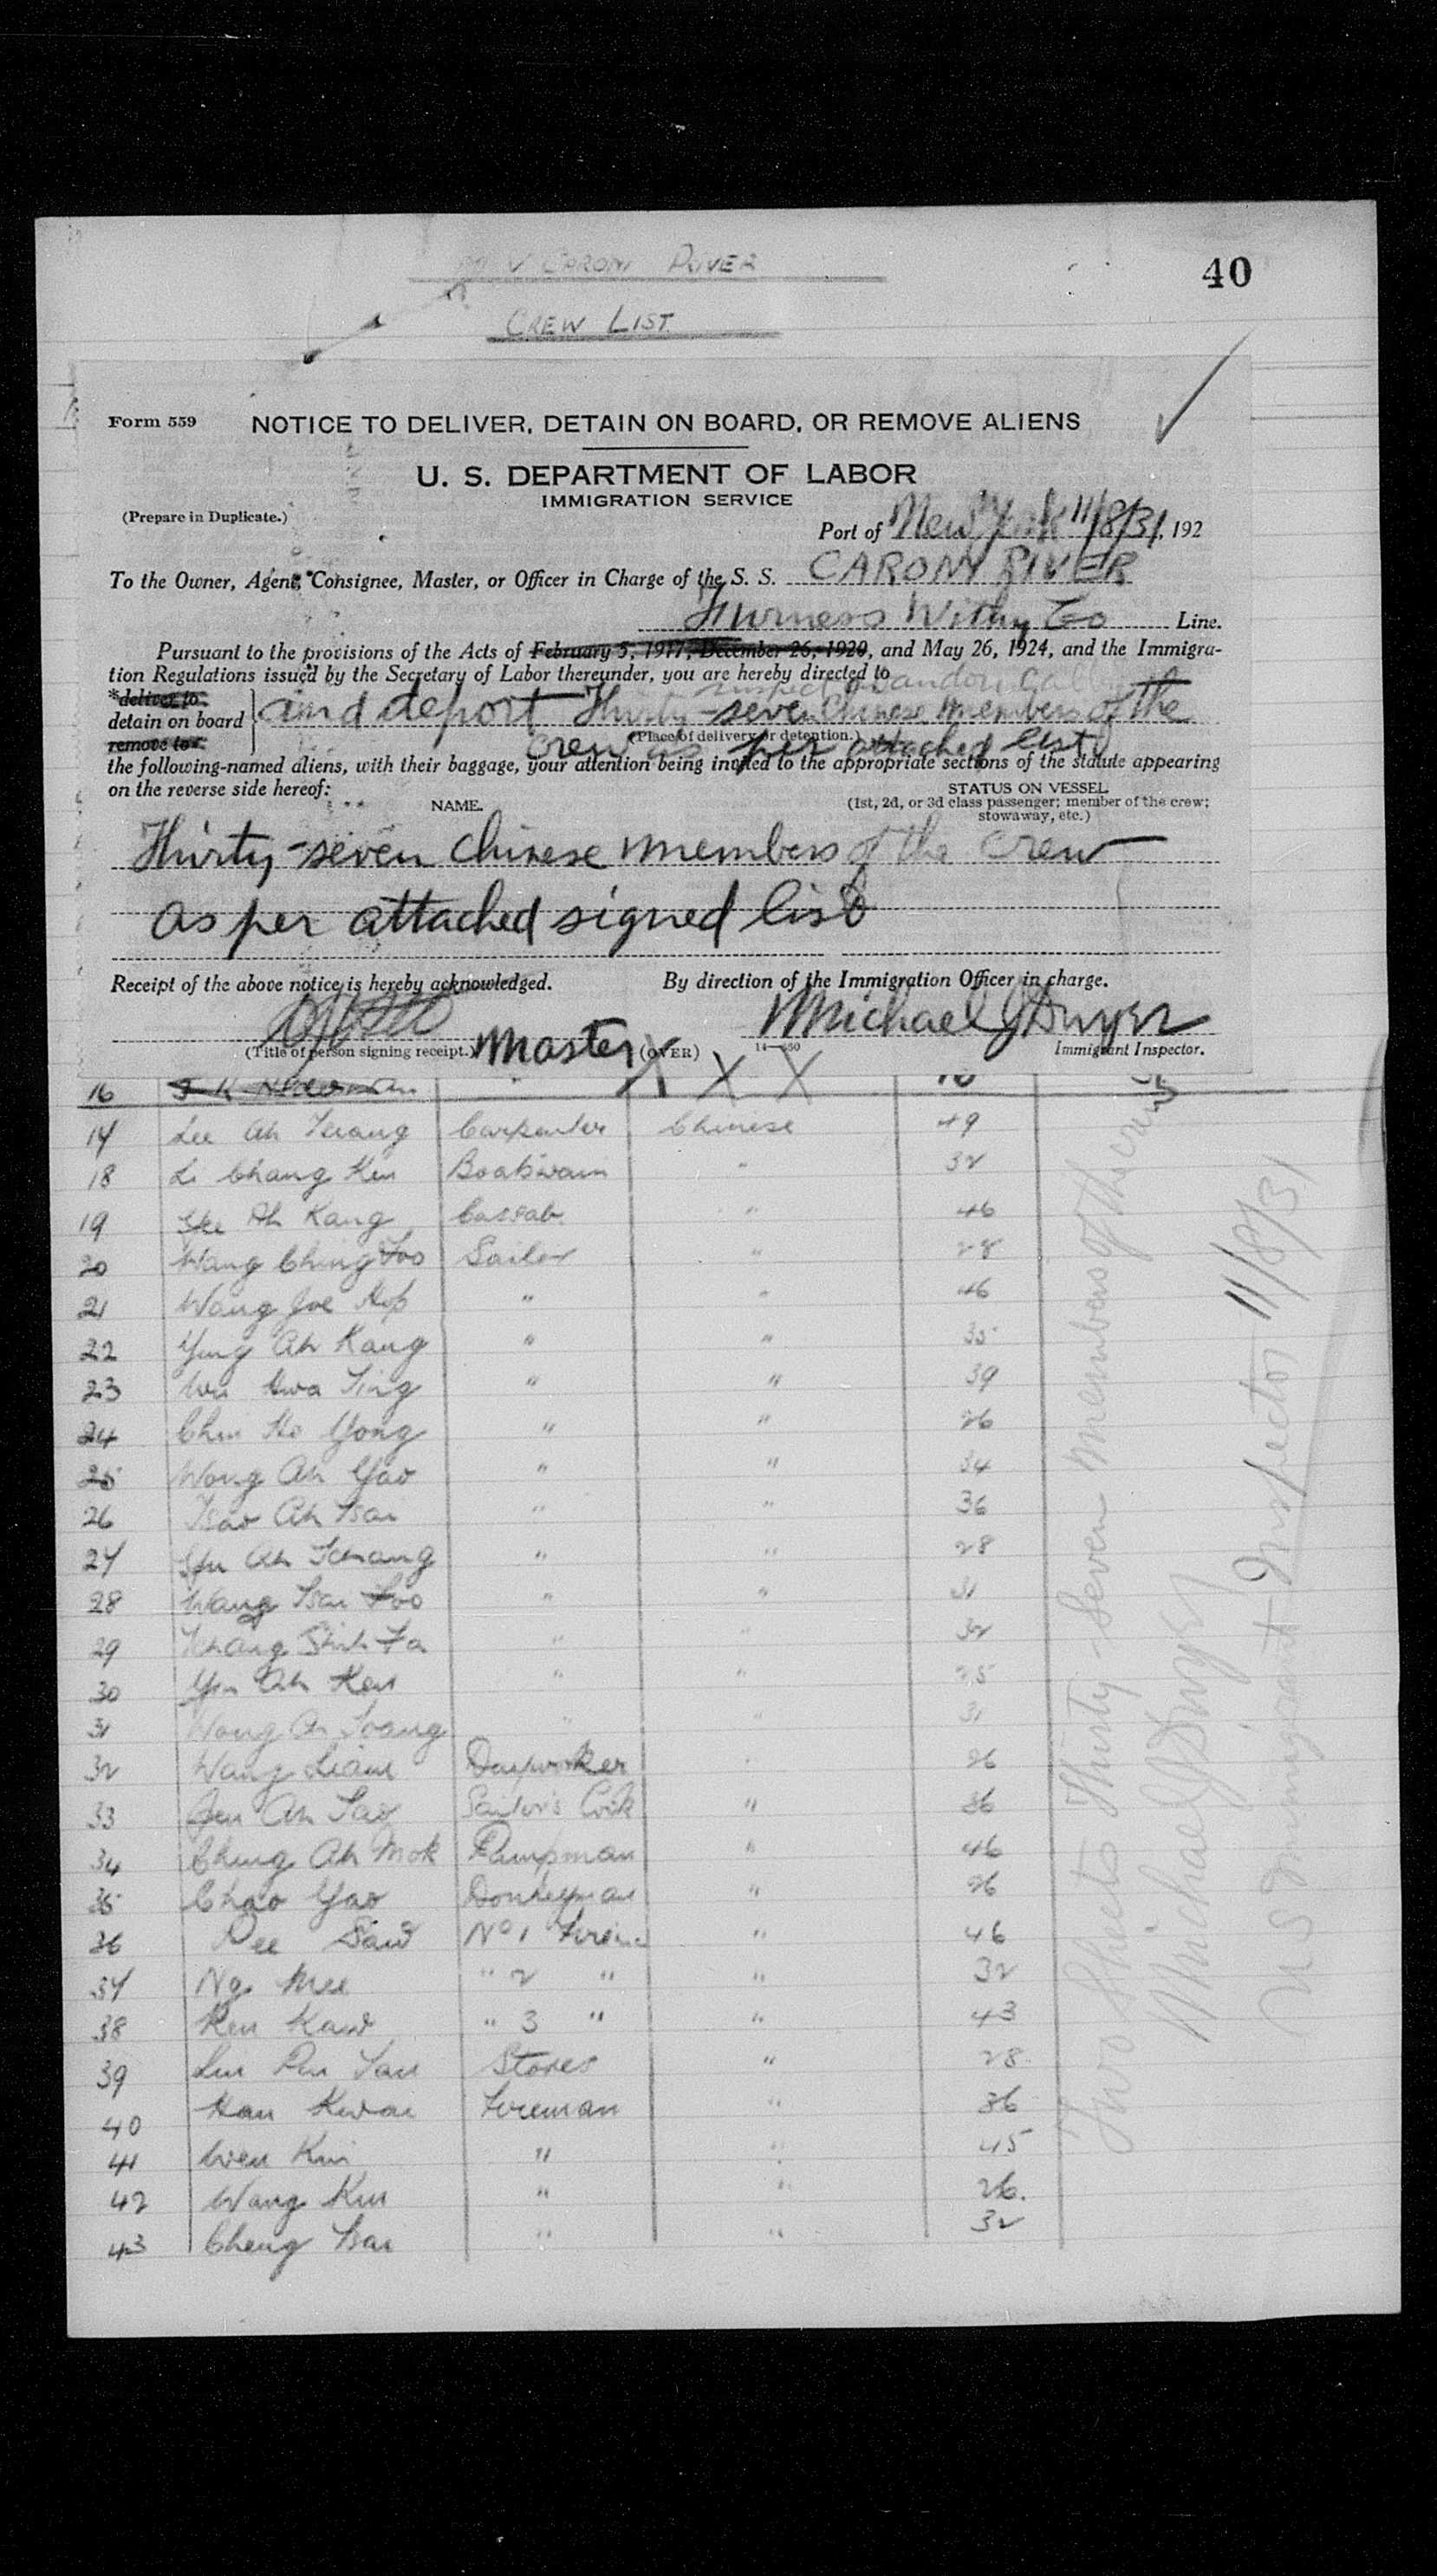 M V CARONI RIVER
40
CREW LIST
Form 559
NOTICE TO DELIVER, DETAIN ON BOARD, OR REMOVE ALIENS
U. S. DEPARTMENT OF LABOR
IMMIGRATION SERVICE
(Prepare in Duplicate.)
Port of New York 11/8/31, 192
To the Owner, Agent, Consignee, Master, or Officer in Charge of the S. S. CARONY RIVER
Furness Withy Co Line.
Pursuant to the provisions of the Acts of February 5, 1917, December 26, 1920, and May 26, 1924, and the Immigra-
tion Regulations issued by the Secretary of Labor thereunder, you are hereby directed to
*deliver to
detain on board and deport Thirty-seven Chinese members of the
remove to
(Place of delivery or detention.)
crew as per attached list
the following-named aliens, with their baggage, your attention being invited to the appropriate sections of the statute appearing
on the reverse side hereof:
NAME.
STATUS ON VESSEL
(1st, 2d, or 3d class passenger; member of the crew;
stowaway, etc.)
Thirty-seven Chinese members of the crew
as per attached signed list
Receipt of the above notice is hereby acknowledged.
By direction of the Immigration Officer in charge.
Michael J Dwyer
(Title of person signing receipt.) Master (OVER)
Immigrant Inspector.
X X X
16
17 Lee Ah Carpenter Chinese 49
18 Li Chang Ken Boatswain " 32
19 Ah Kang Cassab " 46
20 Wang Ching Foo Sailor " 28
21 Wang Joe Hop " " 46
22 Yung Ah Kang " " 35
23 Wu Hwa Ting " " 39
24 Chu Ho Yong " " 26
25 Wong Ah Yao " " 34
26 Tsao Ah Tsai " " 36
27 Ah " " 28
28 Wang Tsai Foo " " 31
29 Shih Fa " " 32
30 Yin Ah Ken " " 25
31 Wong Ah " " 31
32 Wang Dayworker 26
33 Ah Sailor's Cook " 36
34 Ching Ah Mok Pumpman " 46
35 Chao Yao Donkeyman " 26
36 No 1 Fireman " 46
37 Ng Mee " 2 " " 32
38 " 3 " " 43
39 Stores " 28
40 Han Kwai Fireman " 36
41 " " 45
42 Wang " " 26.
43 Cheng Tsai " " 32
Two Sheets Thirty-seven members of the crew
Michael J Dwyer
U S Immigrant Inspector 11/8/31